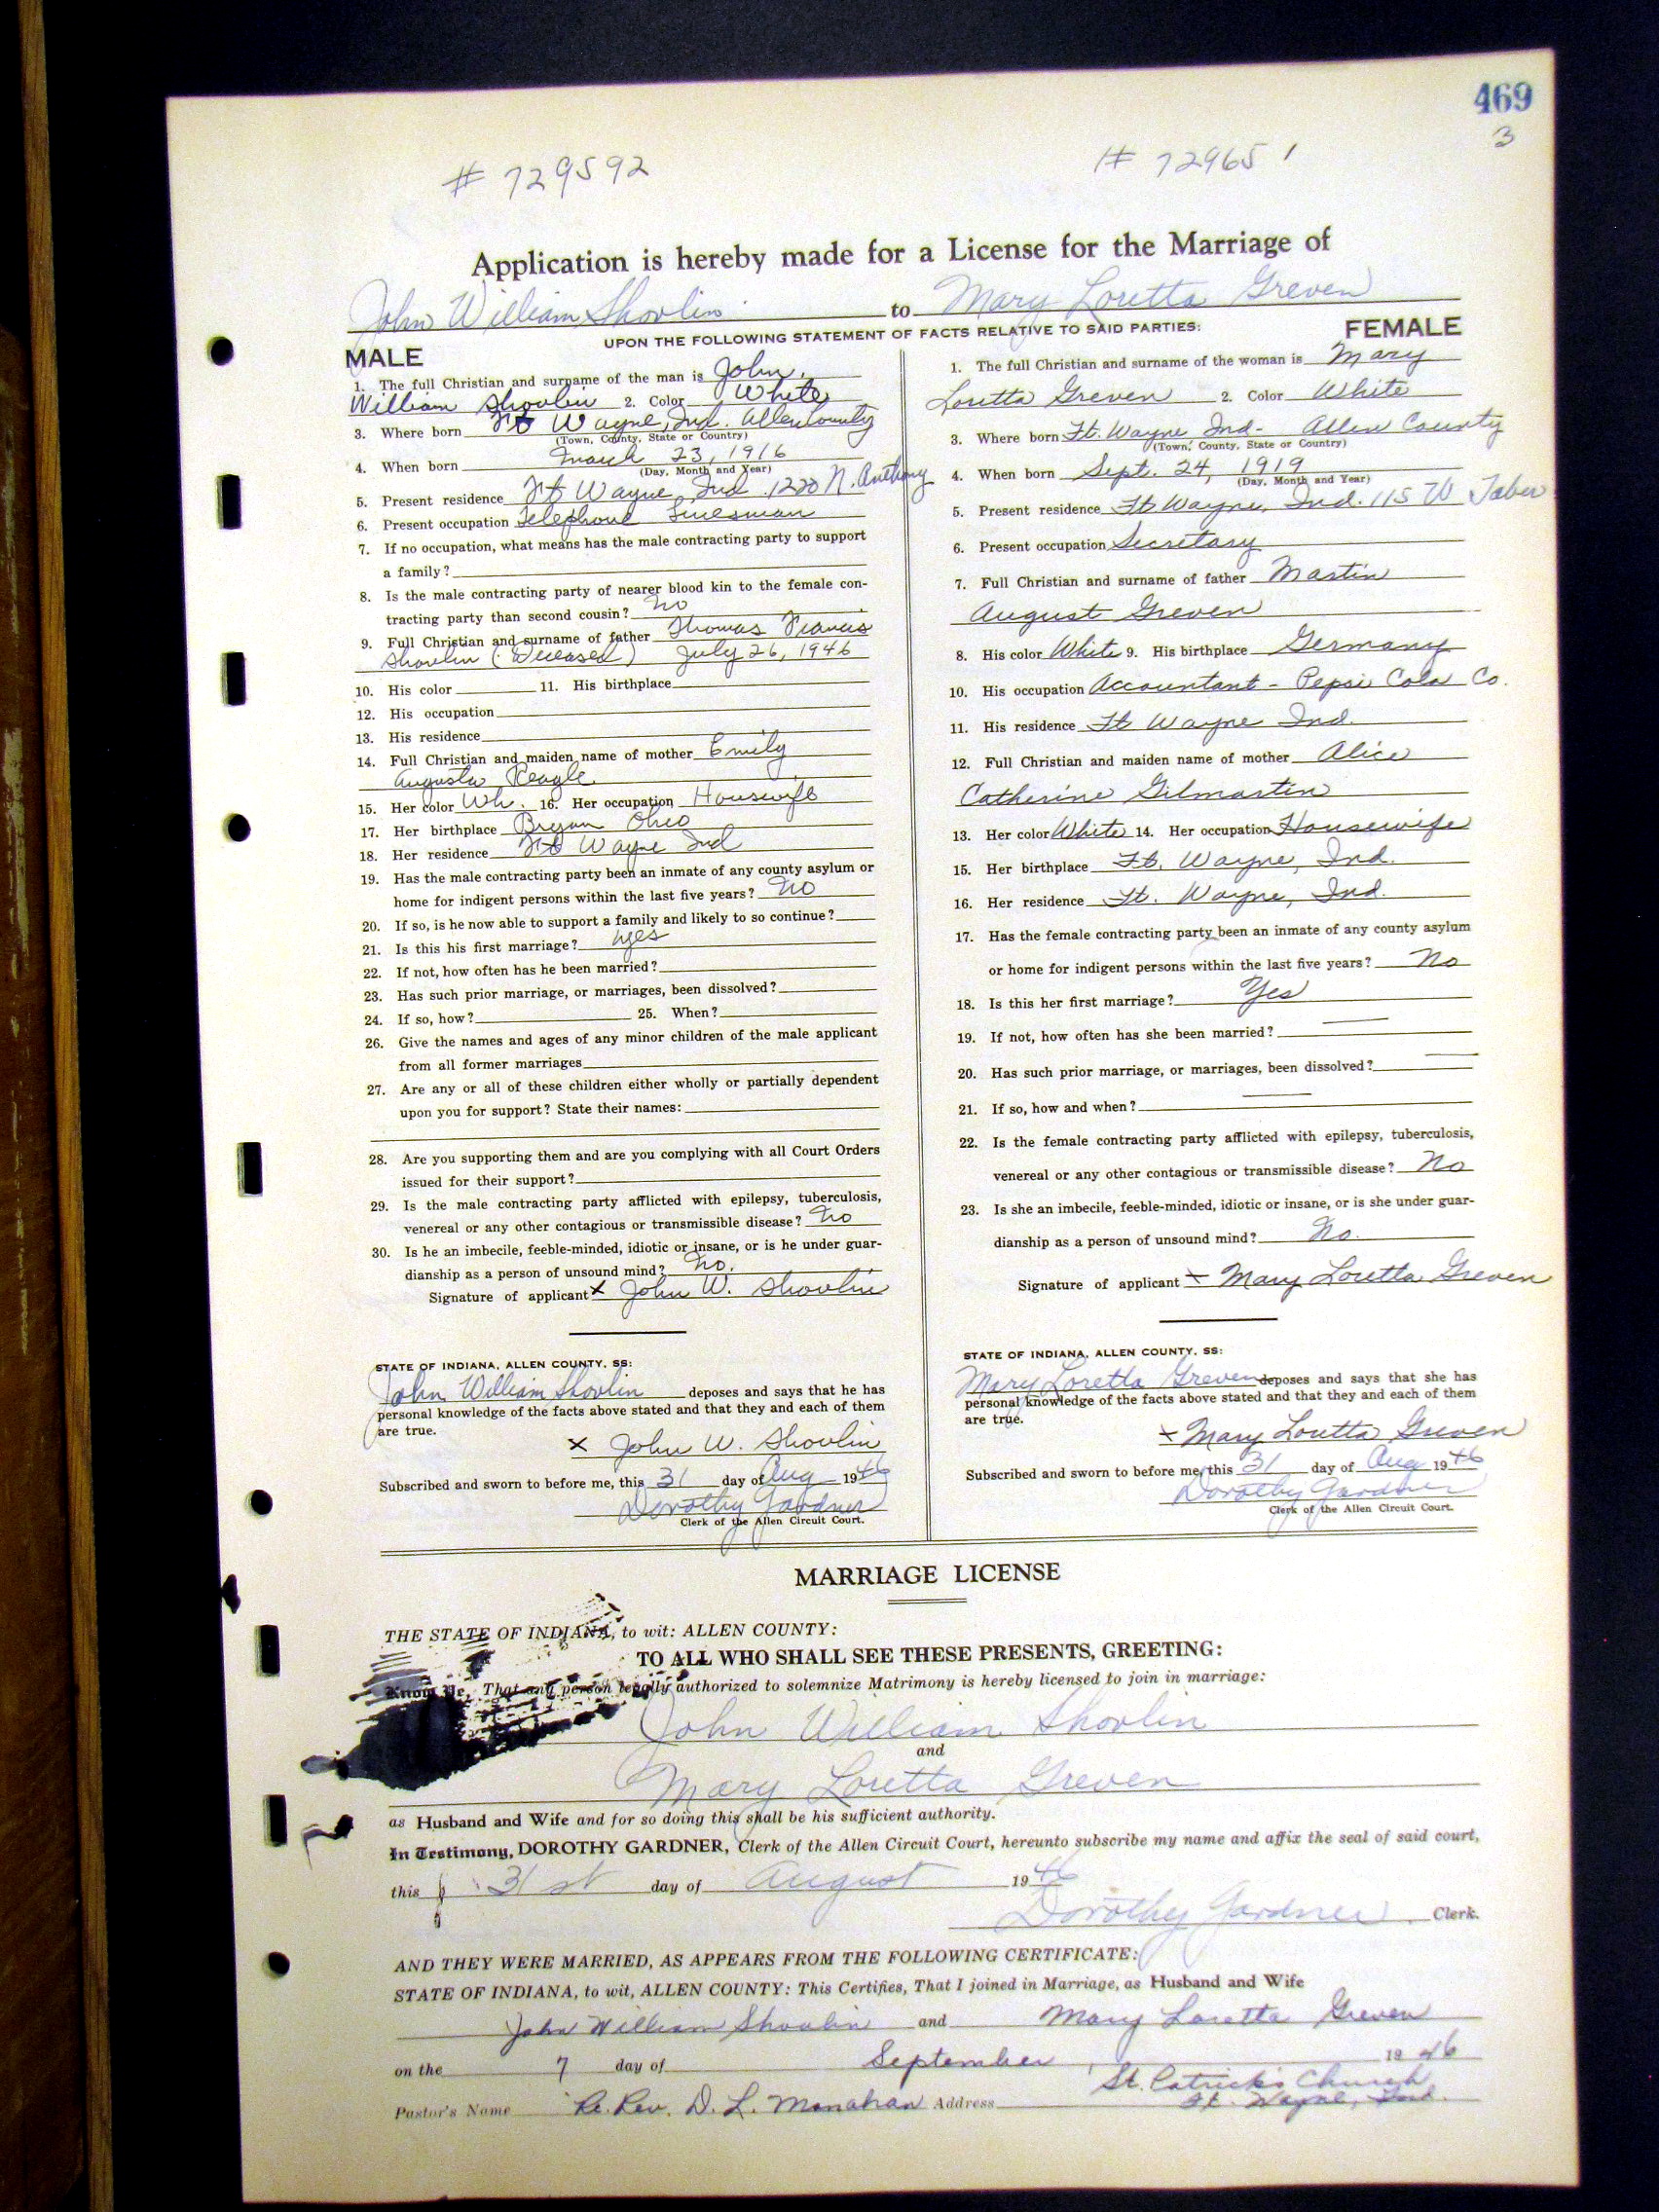 469
3
# 729592
# 729651
Application is hereby made for a License for the Marriage of
John William Shovlin to Mary Loretta Greven
UPON THE FOLLOWING STATEMENT OF FACTS RELATIVE TO SAID PARTIES:
MALE
1. The full Christian and surname of the man is John
William Shovlin 2. Color White
3. Where born Ft Wayne, Ind. Allen County
(Town, County, State or Country)
4. When born March 23, 1916
(Day, Month and Year)
5. Present residence Ft Wayne, Ind. 1220 N. Anthony
6. Present occupation Telephone Linesman
7. If no occupation, what means has the male contracting party to support
a family?
8. Is the male contracting party of nearer blood kin to the female con-
tracting party than second cousin? No
9. Full Christian and surname of father Thomas Francis
Shovlin (Deceased) July 26, 1946
10. His color 11. His birthplace
12. His occupation
13. His residence
14. Full Christian and maiden name of mother Emily
Augusta Reagle
15. Her color Wh. 16. Her occupation Housewife
17. Her birthplace Bryan Ohio
18. Her residence Ft Wayne Ind
19. Has the male contracting party been an inmate of any county asylum or
home for indigent persons within the last five years? No
20. If so, is he now able to support a family and likely to so continue?
21. Is this his first marriage? Yes
22. If not, how often has he been married?
23. Has such prior marriage, or marriages, been dissolved?
24. If so, how? 25. When?
26. Give the names and ages of any minor children of the male applicant
from all former marriages
27. Are any or all of these children either wholly or partially dependent
upon you for support? State their names:
28. Are you supporting them and are you complying with all Court Orders
issued for their support?
29. Is the male contracting party afflicted with epilepsy, tuberculosis,
venereal or any other contagious or transmissible disease? No
30. Is he an imbecile, feeble-minded, idiotic or insane, or is he under guar-
dianship as a person of unsound mind? No.
Signature of applicant x John W. Shovlin
STATE OF INDIANA, ALLEN COUNTY, SS:
John William Shovlin deposes and says that he has
personal knowledge of the facts above stated and that they and each of them
are true.
x John W. Shovlin
Subscribed and sworn to before me, this 31 day of Aug 1946
Dorothy Gardner
Clerk of the Allen Circuit Court.
FEMALE
1. The full Christian and surname of the woman is Mary
Loretta Greven 2. Color White
3. Where born Ft. Wayne Ind- Allen County
(Town, County, State or Country)
4. When born Sept. 24, 1919
(Day, Month and Year)
5. Present residence Ft Wayne, Ind. 115 W Taber
6. Present occupation Secretary
7. Full Christian and surname of father Martin
August Greven
8. His color White 9. His birthplace Germany
10. His occupation Accountant - Pepsi Cola Co.
11. His residence Ft Wayne Ind.
12. Full Christian and maiden name of mother Alice
Catherine Gilmartin
13. Her color White 14. Her occupation Housewife
15. Her birthplace Ft. Wayne, Ind.
16. Her residence Ft. Wayne, Ind.
17. Has the female contracting party been an inmate of any county asylum
or home for indigent persons within the last five years? No
18. Is this her first marriage? Yes
19. If not, how often has she been married?
20. Has such prior marriage, or marriages, been dissolved?
21. If so, how and when?
22. Is the female contracting party afflicted with epilepsy, tuberculosis,
venereal or any other contagious or transmissible disease? No
23. Is she an imbecile, feeble-minded, idiotic or insane, or is she under guar-
dianship as a person of unsound mind? No.
Signature of applicant x Mary Loretta Greven
STATE OF INDIANA, ALLEN COUNTY, SS:
Mary Loretta Greven deposes and says that she has
personal knowledge of the facts above stated and that they and each of them
are true.
x Mary Loretta Greven
Subscribed and sworn to before me, this 31 day of Aug 1946
Dorothy Gardner
Clerk of the Allen Circuit Court.
MARRIAGE LICENSE
THE STATE OF INDIANA, to wit: ALLEN COUNTY:
TO ALL WHO SHALL SEE THESE PRESENTS, GREETING:
Know Ye, That any person legally authorized to solemnize Matrimony is hereby licensed to join in marriage:
John William Shovlin
and
Mary Loretta Greven
as Husband and Wife and for so doing this shall be his sufficient authority.
In Testimony, DOROTHY GARDNER, Clerk of the Allen Circuit Court, hereunto subscribe my name and affix the seal of said court,
this 31st day of August 1946
Dorothy Gardner, Clerk.
AND THEY WERE MARRIED, AS APPEARS FROM THE FOLLOWING CERTIFICATE:
STATE OF INDIANA, to wit, ALLEN COUNTY: This Certifies, That I joined in Marriage, as Husband and Wife
John William Shovlin and Mary Loretta Greven
on the 7 day of September, 1946
Pastor's Name Rt. Rev. D. L. Monahan Address St. Patrick's Church
Ft. Wayne, Ind.